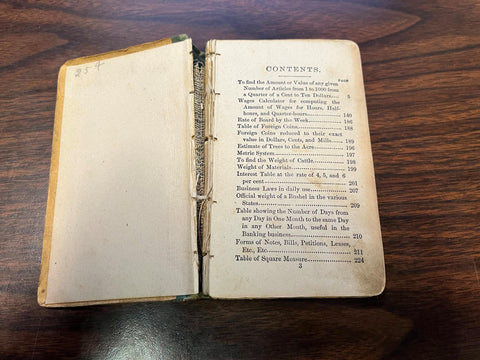 254
CONTENTS.
PAGE
To find the Amount or Value of any given
Number of Articles from 1 to 1000 from
a Quarter of a Cent to Ten Dollars..... 5
Wages Calculator for computing the
Amount of Wages for Hours, Half-
hours, and Quarter-hours................ 140
Rate of Board by the Week................ 186
Table of Foreign Coins..................... 188
Foreign Coins reduced to their exact
value in Dollars, Cents, and Mills..... 189
Estimate of Trees to the Acre............. 196
Metric System................................ 197
To find the Weight of Cattle............... 198
Weight of Materials......................... 199
Interest Table at the rate of 4, 5, and 6
per cent....................................... 201
Business Laws in daily use................ 207
Official weight of a Bushel in the various
States.......................................... 209
Table showing the Number of Days from
any Day in One Month to the same Day
in any Other Month, useful in the
Banking business.......................... 210
Forms of Notes, Bills, Petitions, Leases,
Etc., Etc....................................... 211
Table of Square Measure.................. 224
3